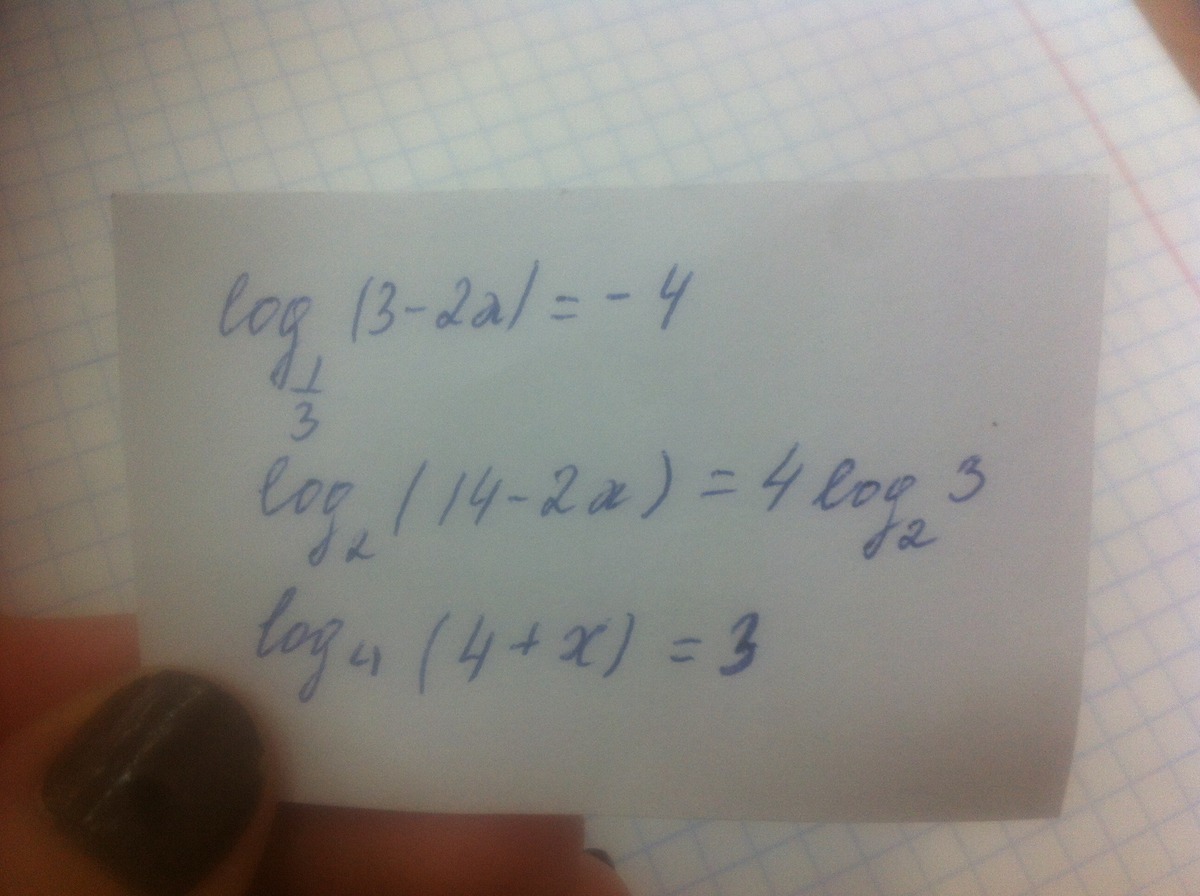 log_{1/3} (3-2x) = -4
log_2 (14-2x) = 4 log_2 3
log_4 (4+x) = 3